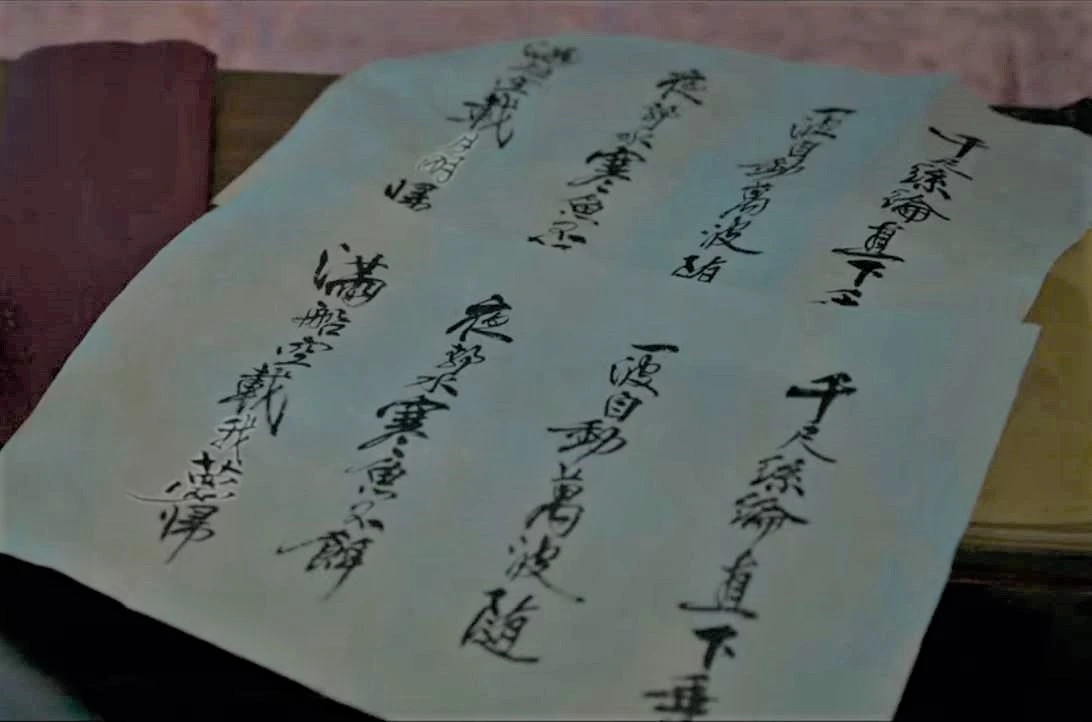 千尺絲綸直下
一波自動萬波隨
夜靜水寒魚不
滿船空載月明歸
千尺絲綸直下垂
一波自動萬波隨
夜靜水寒魚不餌
滿船空載我歸